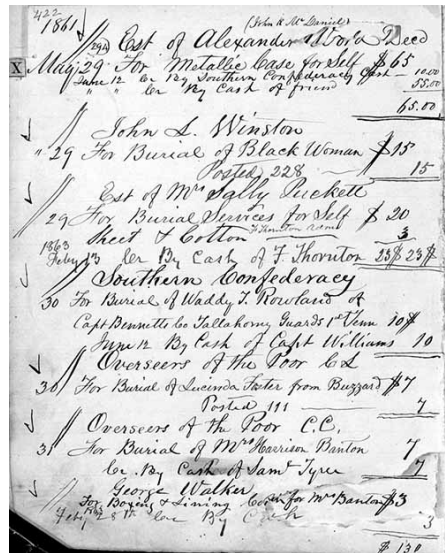 422
1861
(John R McDaniel)
294 Est of Alexander Word Decd
X May 29 For Metallic Case for Self $65
June 12 Cr By Southern Confederacy Cash 10.00
" " Cr By Cash of friend 55.00
65.00
John S. Winston
" 29 For Burial of Black Woman $15
Posted 228 15
Est of Mrs Sally Puckett
29 For Burial Services for Self $20
Sheet & Cotton F Thornton 3
1863
Feby 13 Cr By Cash of F. Thornton 23 $ 23 $
Southern Confederacy
30 For Burial of Waddy T. Rowland of
Capt Bennetts Co Tallahomy Guards 1st Tenn 10 $
June 12 By Cash of Capt Williams 10
Overseers of the Poor CL
30 For Burial of Lucinda Foster from Buzzard $7
Posted 111 7
Overseers of the Poor C.C.
31 For Burial of Mrs Harrison Banton 7
Cr. By Cash of Saml Tyree 7
George Walker
For Boxing & Lining for Mrs Banton $3
Feby 28th Cr By Cash 3
$ 130